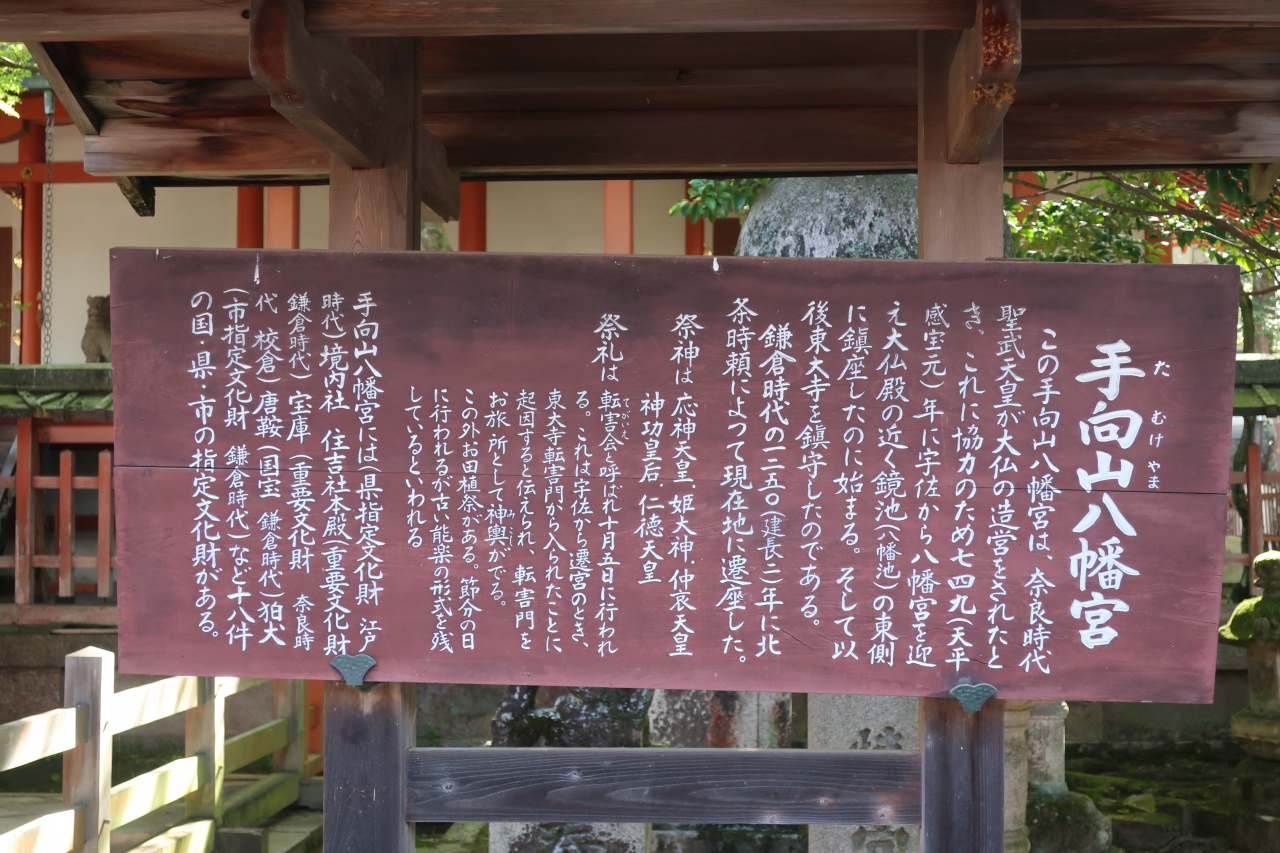 手向山八幡宮
たむけやま
この手向山八幡宮は、奈良時代
聖武天皇が大仏の造営をされたと
き、これに協力のため七四九(天平
感宝元)年に宇佐から八幡宮を迎
え大仏殿の近く鏡池(八幡池)の東側
に鎮座したのに始まる。そして以
後東大寺を鎮守したのである。
鎌倉時代の一二五〇(建長二)年に北
条時頼によって現在地に遷座した。
祭神は 応神天皇、姫大神、仲哀天皇
神功皇后、仁徳天皇
祭礼は 転害会と呼ばれ十月五日に行われ
てがいえ
る。これは宇佐から遷宮のとき、
東大寺転害門から入られたことに
起因すると伝えられ、転害門を
お旅所として神輿がでる。
みこし
この外お田植祭がある。節分の日
に行われるが古い能楽の形式を残
しているといわれる
手向山八幡宮には(県指定文化財 江戸
時代)境内社 住吉社本殿(重要文化財
鎌倉時代)宝庫(重要文化財 奈良時
代 校倉)唐鞍(国宝 鎌倉時代)狛犬
(市指定文化財 鎌倉時代)など十八件
の国・県・市の指定文化財がある。